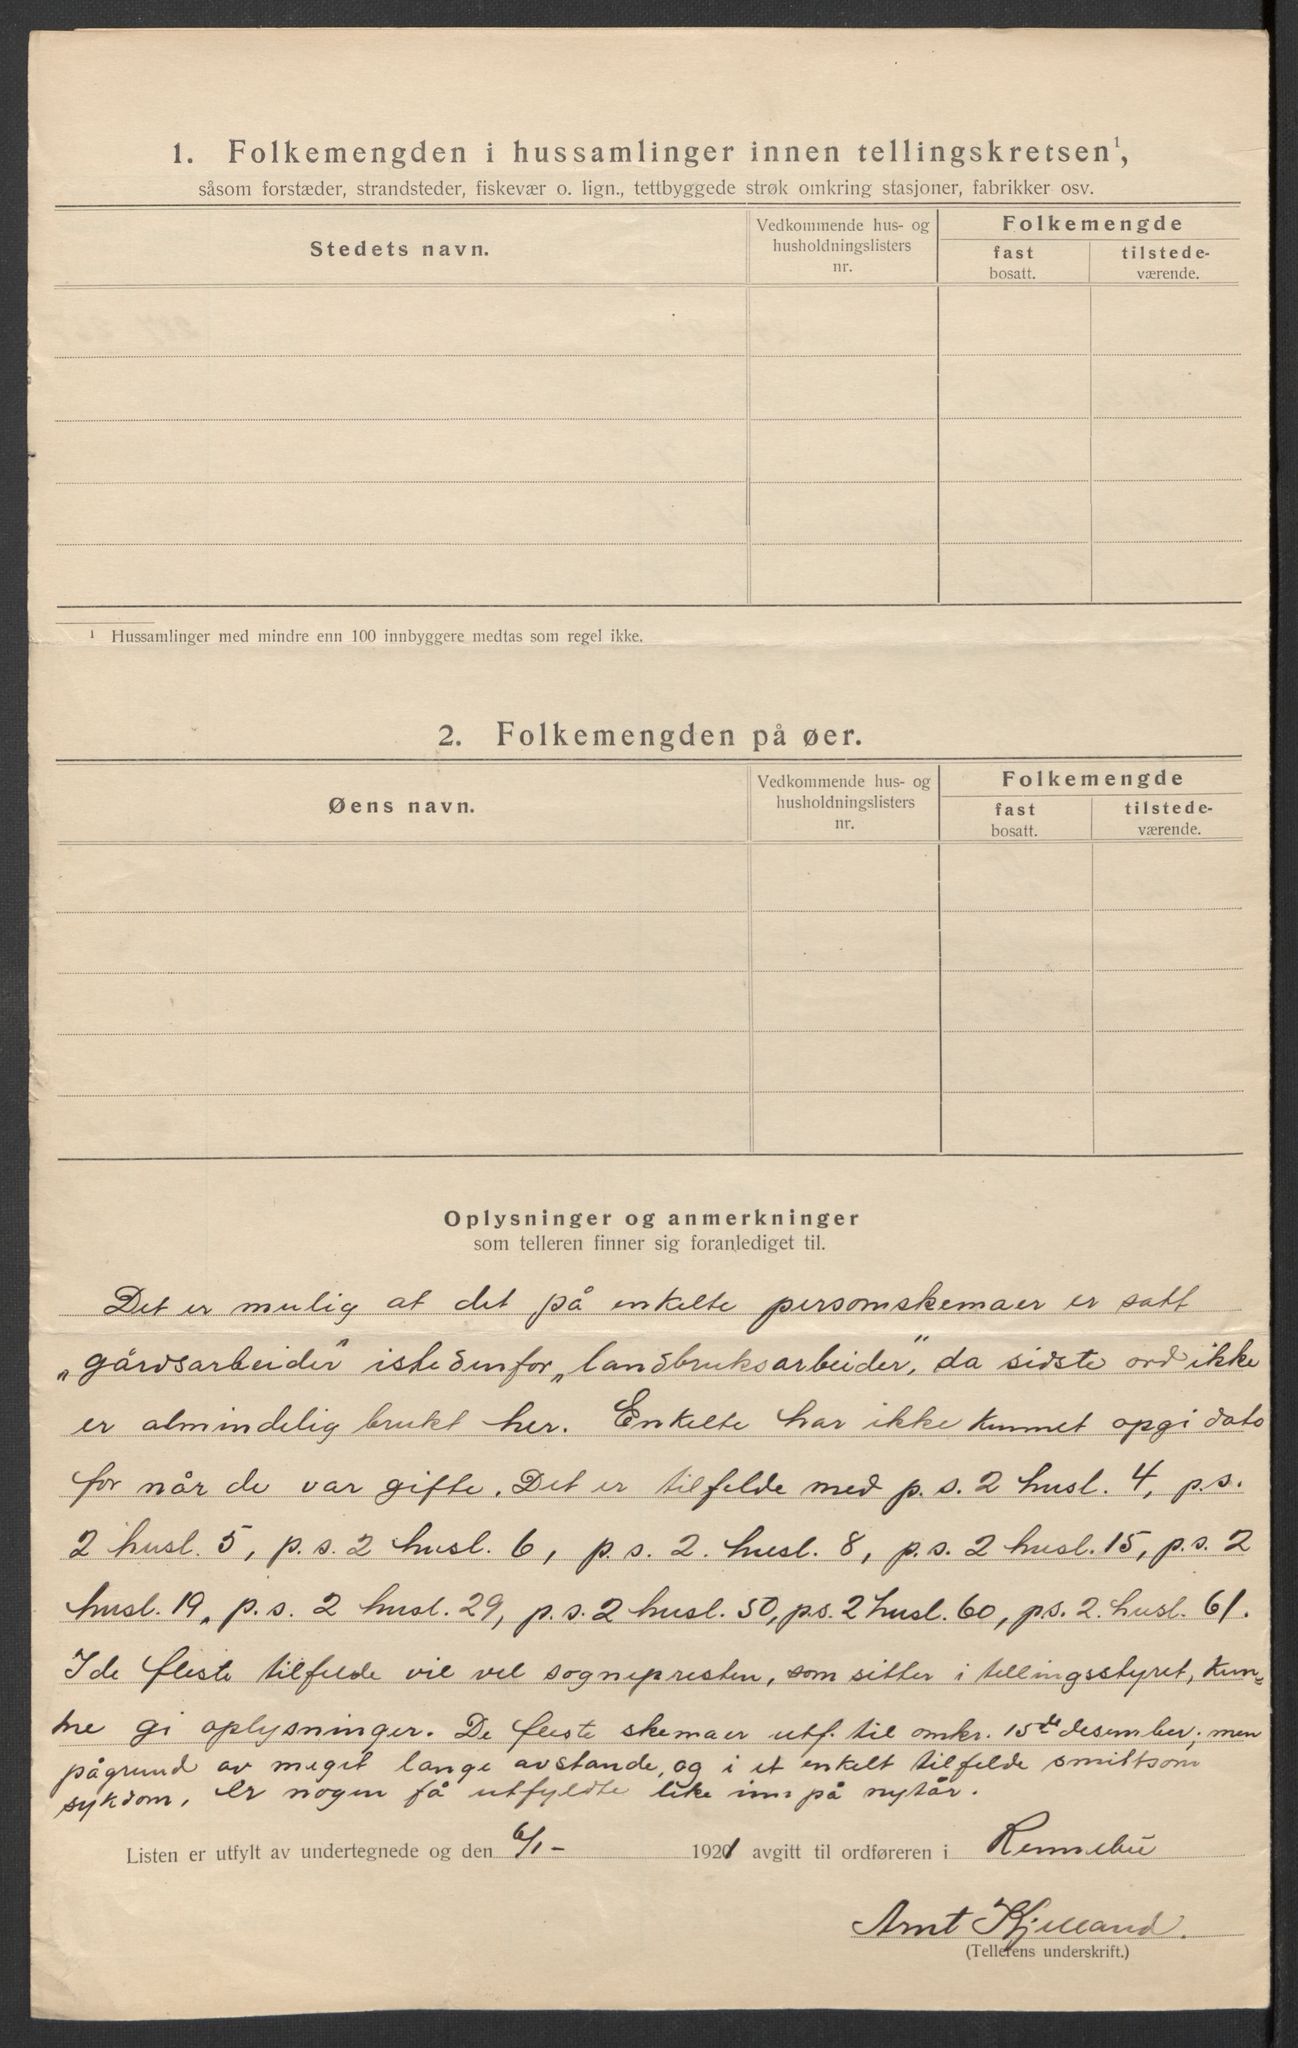 1. Folkemengden i hussamlinger innen tellingskretsen¹,
såsom forstæder, strandsteder, fiskevær o. lign., tettbyggede strøk omkring stasjoner, fabrikker osv.
Stedets navn.
Vedkommende hus- og
husholdningslisters
nr.
Folkemengde
fast
bosatt.
tilstede-
værende.
¹ Hussamlinger med mindre enn 100 innbyggere medtas som regel ikke.
2. Folkemengden på øer.
Øens navn.
Vedkommende hus- og
husholdningslisters
nr.
Folkemengde
fast
bosatt.
tilstede-
værende.
Oplysninger og anmerkninger
som telleren finner sig foranlediget til.
Det er mulig at det på enkelte personskemaer er satt
„gårdsarbeider" istedenfor „landbruksarbeider", da sidste ord ikke
er almindelig brukt her. Enkelte har ikke kunnet opgi dato
for når de var gifte. Det er tilfelde med p. s. 2 husl. 4, p.s.
2 husl. 5, p. s. 2 husl. 6, p. s. 2. husl. 8, p. s. 2 husl. 15, p. s. 2
husl. 19, p. s. 2 husl. 29, p. s. 2 husl. 50, p.s. 2 husl. 60, p.s. 2. husl. 61.
I de fleste tilfelde vil vel sognepresten, som sitter i tellingsstyret, kun-
ne gi oplysninger. De fleste skemaer utf. til omkr. 15de desember; men
pågrund av meget lange avstande, og i et enkelt tilfelde smittsom
sykdom, er nogen få utfyldte like inn på nytår.
Listen er utfylt av undertegnede og den 6/1- 1921 avgitt til ordføreren i Rennebu
Arnt Kjelland.
(Tellerens underskrift.)